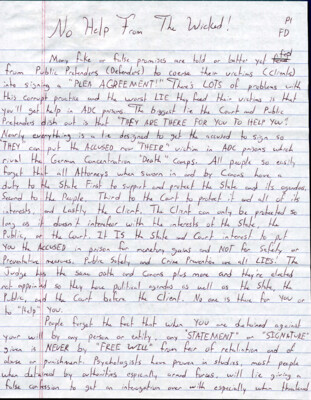 No Help From The Wicked!
P1
FD
Many fake or false promises are told or better yet
from Public Pretenders (Defenders) to coerse their victims (Clients)
into signing a "PLEA AGREEMENT!" There's LOTS of problems with
this corrupt practice and the worst LIE they feed their victims is that
you'll get help in ADC prisons. The biggest lie the Court and Public
Pretenders dish out is that "THEY ARE THERE FOR YOU TO HELP YOU".
Nearly everything is a lie designed to get the accused to sign so
THEY can put the ACCUSED now THEIR victim in ADC prisons which
rival the German Concentration "Death" Camps. All people so easily
forget that all Attorneys when sworn in and by Canons have a
duty to the State First to support and protect the State and its agendas,
Second to the People, Third to the Court to protect it and all of its
interests, and Lastly, the Client. The Client can only be protected so
long as it doesn't interfere with the interests of the State, the
Public, or the Court. It IS the State and Court interest to get
you the ACCUSED in prison for monetary gains and NOT for Safety or
Preventative measures. Public Safety and Crime Prevention are all LIES! The
Judge has the same oath and Canons plus more and they're elected
not appointed so they have political agendas as well as the State, the
Public, and the Court before the Client. No one is there for YOU or
to "Help" you.
People forget the fact that when YOU are detained against
your will by any person or entity, any "STATEMENT" or "SIGNATURE"
given is NEVER by "FREE WILL" from fear of retaliation and of
abuse or punishment. Psychologists have proven in studies, most people
when detained by authorities especially armed forces, will lie giving a
false confession to get an interogation over with especially when threatened